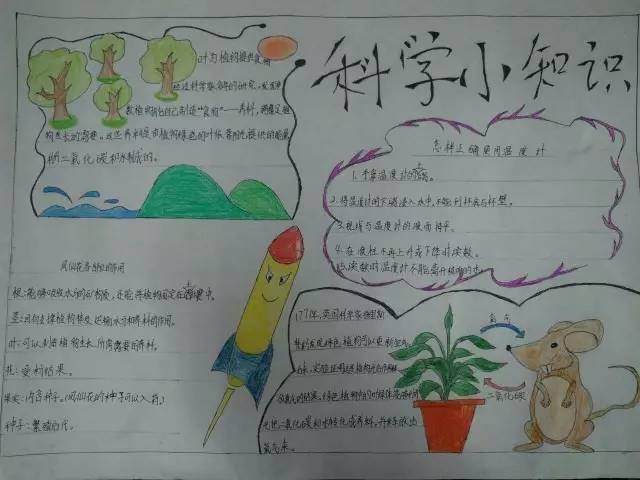 科学小知识
叶为植物提供食物
经过科学家多年的研究,发现多
数植物能自己制造“食物”——养料,满足植
物生长的需要。这些养料是由植物绿色的叶依靠阳光提供的能量
用二氧化碳和水制成的。
怎样正确使用温度计
1.手拿温度计的上端。
2.将温度计的下端浸入水中,不能碰杯底与杯壁。
3.视线与温度计的液面持平。
4.在液柱不再上升或下降时读数。
5.读数时温度计不能离开被测的水。
凤仙花各部位的作用
根:能够吸收水分和矿物质,还能将植物固定在土壤中。
茎:具有支撑植物体及运输水分和养料的作用。
叶:可以制造植物生长所需要的养料。
花:受粉结果。
果实:内含种子。(凤仙花的种子可以入药)
种子:繁殖后代。
1771年,英国科学家普里斯
特利发现绿色植物可以更新空气
二氧化碳和水转化成养料,并释放出
氧气来。
氧气
二氧化碳